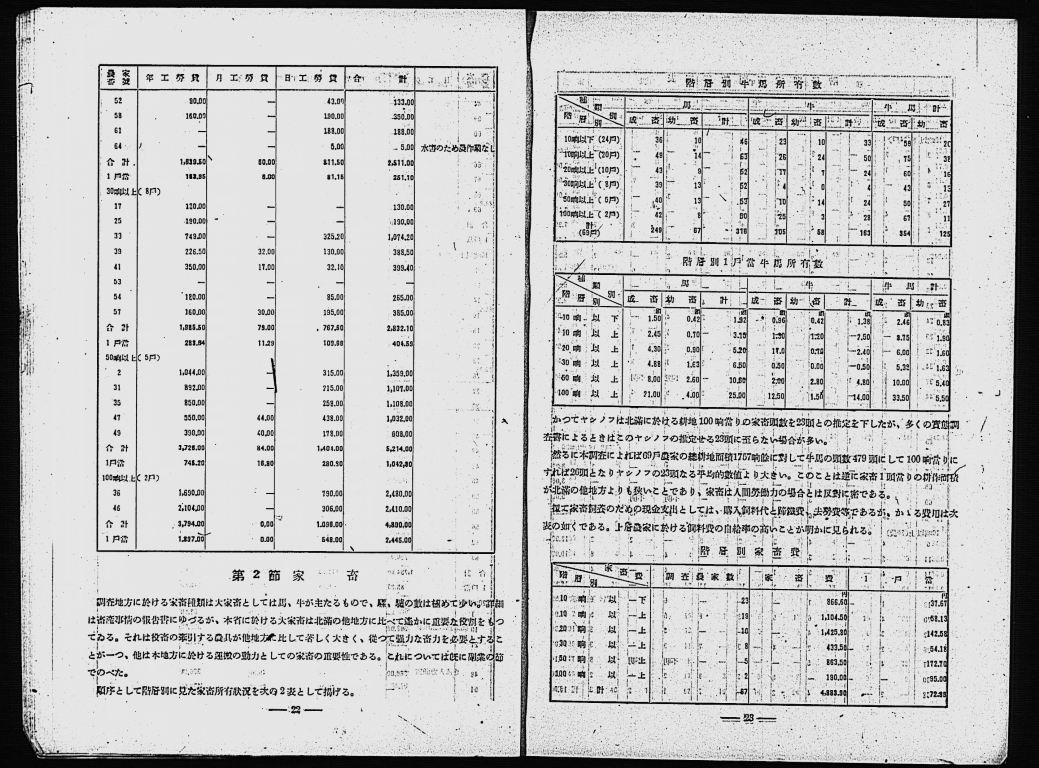 農家番號 年工勞賃 月工勞賃 日工勞賃 合計
52 90.00 — 43.00 133.00
58 160.00 — 190.00 350.00
61 — — 188.00 188.00
64 — — 5.00 5.00 水害のため農作業なし
合計 1,839.50 60.00 811.50 2,511.00
1戸當 6.00 81.15 251.10
30晌以上(8戸)
17 130.00 — — 130.00
25 190.00 — — 190.00
33 749.00 — 325.20 1,074.20
39 226.50 32.00 130.00 388.50
41 350.00 17.00 32.10 399.40
53 — — — —
54 180.00 — 85.00 265.00
57 160.00 30.00 195.00 385.00
合計 1,985.50 79.00 767.60 2,832.10
1戸當 11.29 404.59
50晌以上(5戸)
2 1,044.00 — 315.00 1,359.00
31 892.00 — 215.00 1,107.00
35 850.00 — 258.00 1,108.00
47 550.00 44.00 438.00 1,032.00
49 390.00 40.00 178.00 608.00
合計 3,726.00 84.00 1,404.00 5,214.00
1戸當 745.20 16.80 280.80 1,042.80
100晌以上(2戸)
36 1,690.00 — 790.00 2,480.00
46 2,104.00 — 306.00 2,410.00
合計 3,794.00 0.00 1,096.00 4,890.00
1戸當 1,897.00 0.00 548.00 2,445.00
第2節 家畜
調査地方に於ける家畜種類は大家畜としては馬、牛が主たるもので、騾、驢の數は極めて少い。詳細
は畜產事情の報告書にゆづるが、本省に於ける大家畜は北滿の他地方に比べて遙かに重要な役割をもつ
てゐる。それは役畜の牽引する農具が他地方に比して著しく大きく、從つて强力な畜力を必要とするこ
とが一つ、他は本地方に於ける運搬の動力としての家畜の重要性である。これについては旣に副業の節
でのべた。
順序として階層別に見た家畜所有狀況を次の2表として揭げる。
— 22 —
階層別牛馬所有數
種類 馬 牛 牛馬計
階層別 成畜 幼畜 計 成畜 幼畜 計 成畜 幼畜
10晌以下(24戸) 36 10 46 23 10 33 59 20
10晌以上(20戸) 49 14 63 26 24 50 75 38
20晌以上(10戸) 43 9 52 17 7 24 60 16
30晌以上(8戸) 39 13 52 4 0 4 43 13
50晌以上(5戸) 40 13 53 10 14 24 50 27
100晌以上(2戸) 42 8 50 25 3 28 67 11
計(69戸) 249 67 316 105 58 163 354 125
階層別1戸當牛馬所有數
種類 馬 牛 牛馬計
階層別 成畜 幼畜 計 成畜 幼畜 計 成畜 幼畜
10晌以下 1.50 0.42 1.92 0.96 0.42 1.38 2.46 0.83
10晌以上 2.45 0.70 3.15 1.30 1.20 2.50 3.75 1.90
20晌以上 4.30 0.90 5.20 2.40 6.00 1.60
30晌以上 4.88 1.63 6.50 0.50 0.00 0.50 1.63
50晌以上 8.00 2.60 10.60 2.00 2.80 4.80 10.00 5.40
100晌以上 21.00 4.00 25.00 12.50 1.50 14.00 33.50 5.50
かつてヤシノフは北滿に於ける耕地100晌當りの家畜頭數を23頭との推定を下したが、多くの實態調
査書によるときはこのヤシノフの推定せる23頭に至らない場合が多い。
然るに本調査によれば69戸農家の總耕地面積1757晌餘に對して牛馬の頭數479頭にして100晌當りに
すれば26頭となりヤシノフの23頭なる平均的數値より大きい。このことは逆に家畜1頭當りの耕作面積
が北滿の他地方よりも狹いことであり、家畜は人間勞働力の場合とは反對に密である。
家畜調査のための現金支出としては、購入飼料代と蹄鐵費、去勞費等であるが、かゝる費用は次
表の如くである。上層農家に於ける飼料費の自給率の高いことが明かに見られる。
階層別家畜費
階層別 家畜費 調査農家數 家畜費 1戸當
10晌以下 23 866.60 37.67
10晌以上 19 1,104.50 58.13
20晌以上 10 1,425.80 142.58
30晌以上 8 433.50 54.18
50晌以上 5 863.50 172.70
100晌以上 2 190.00 95.00
計 67 4,883.90 72.95
— 23 —